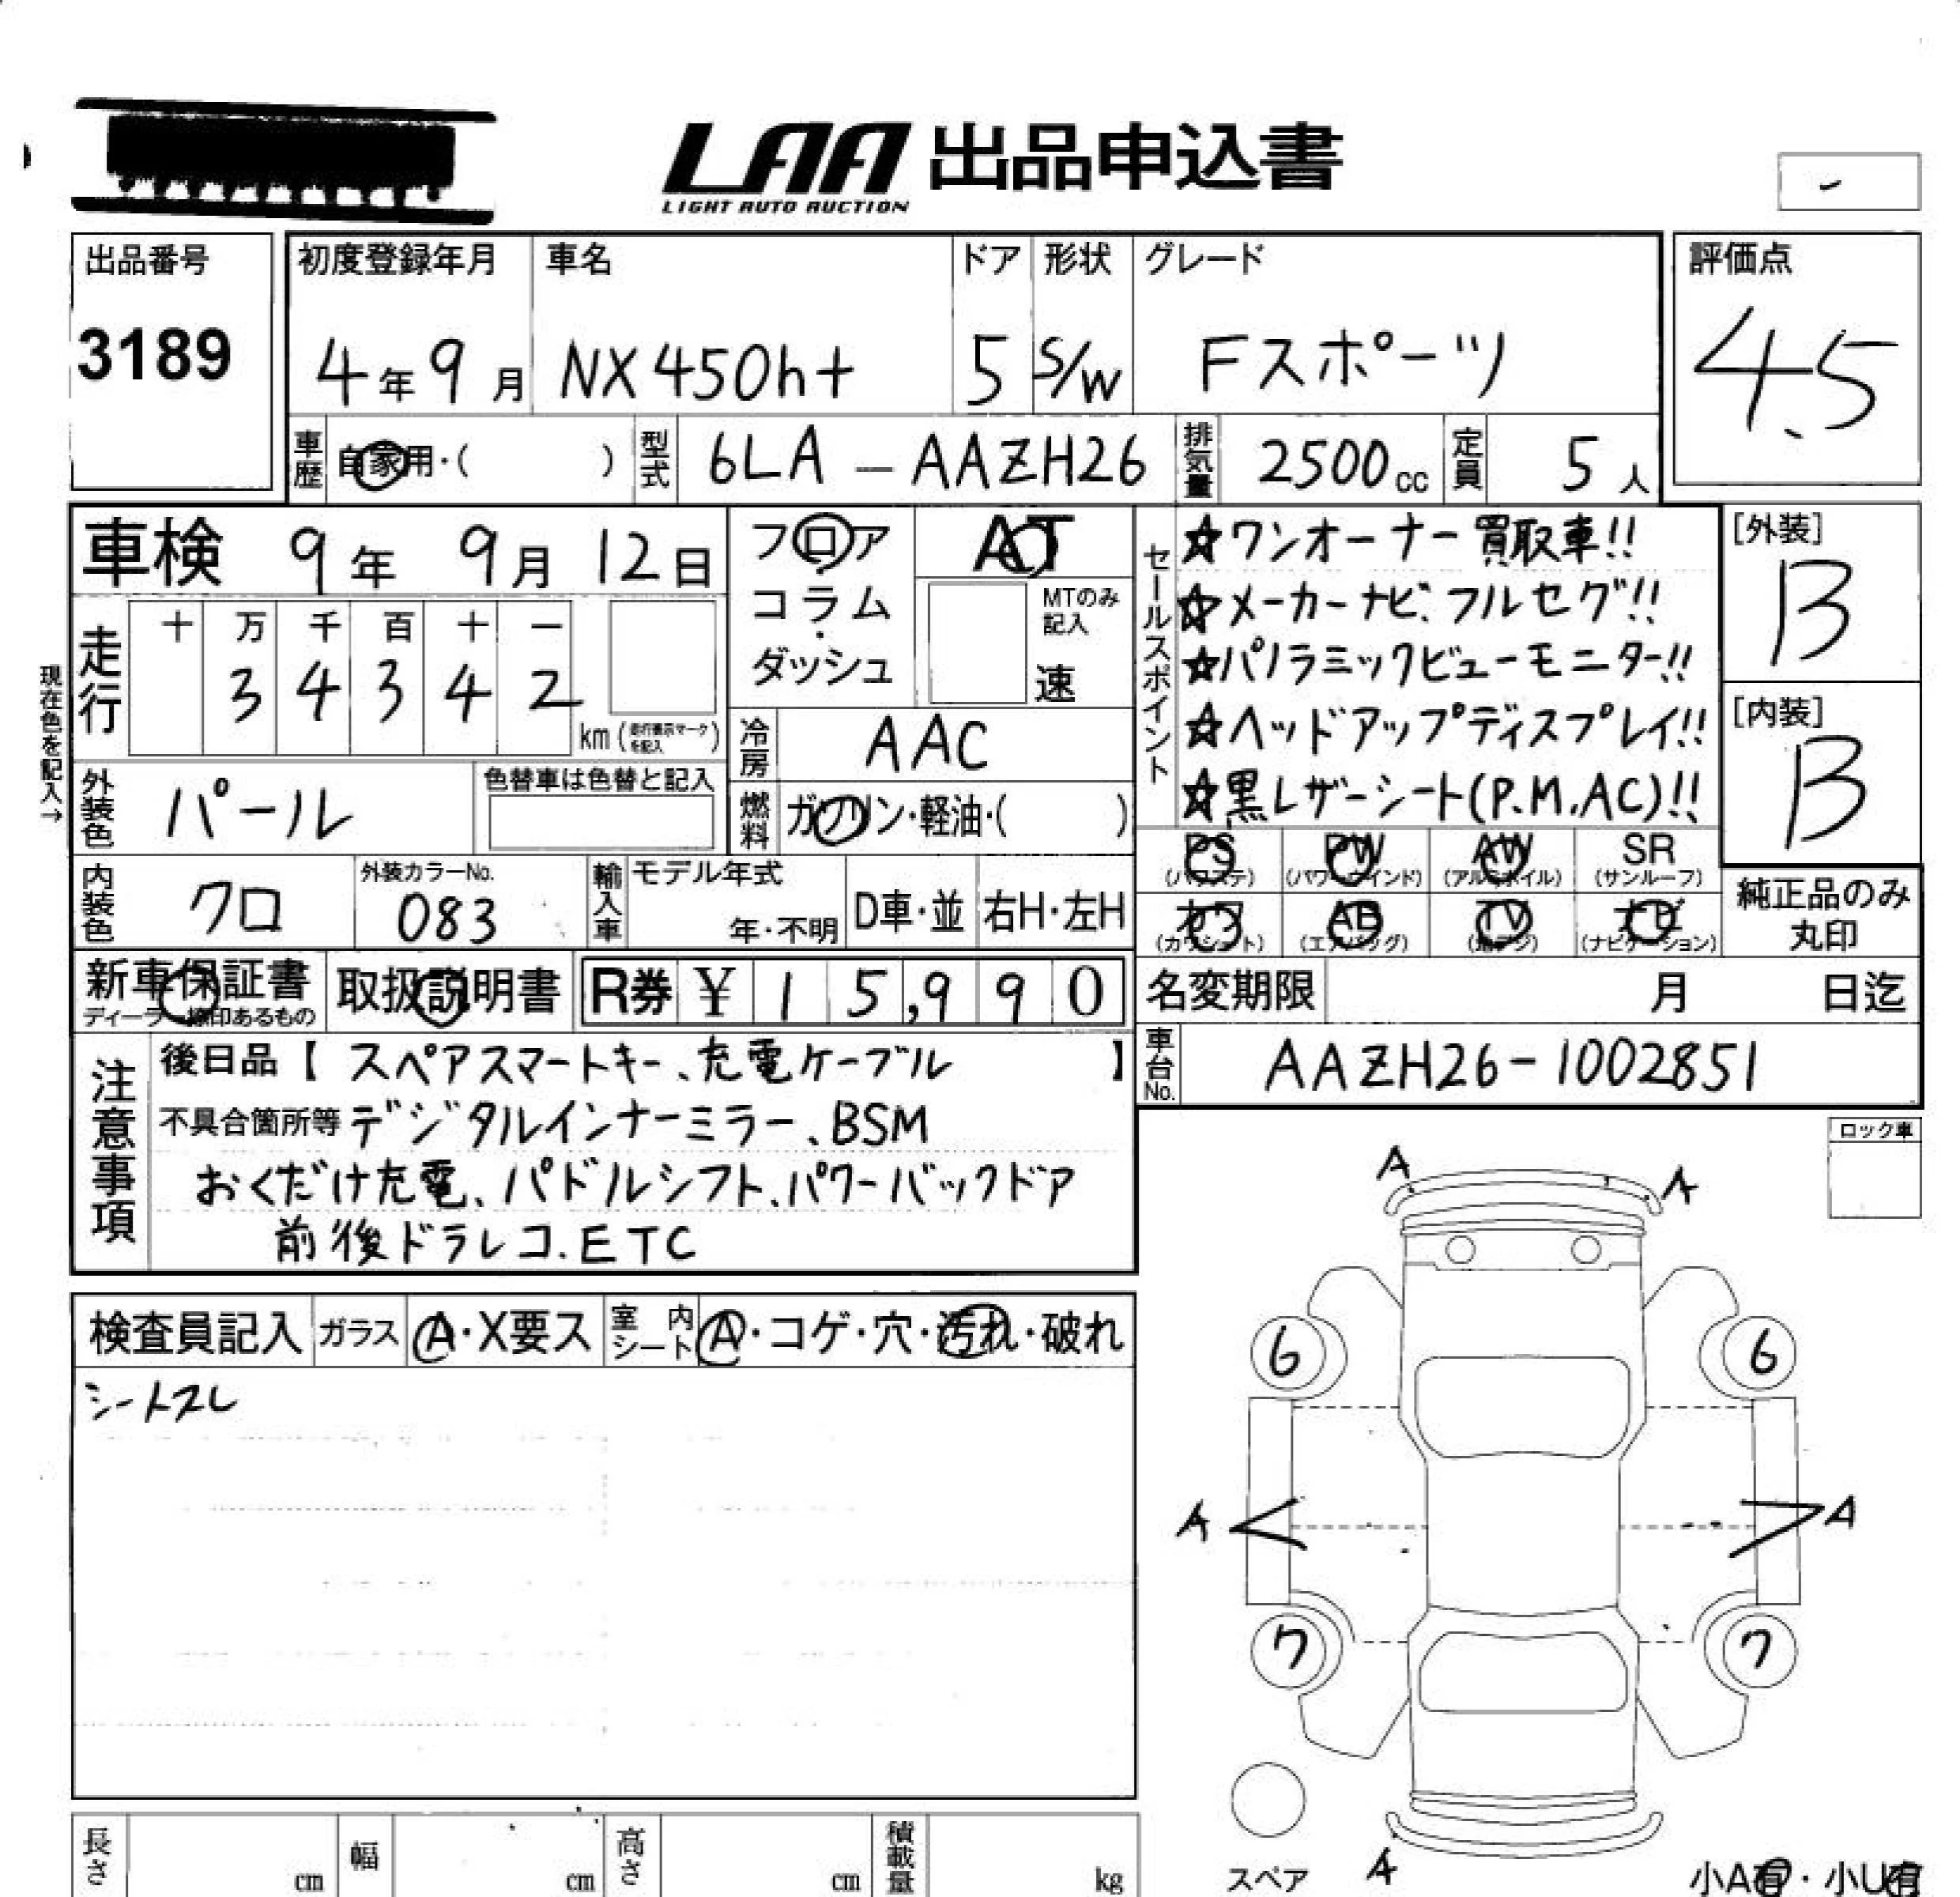 LAA 出品申込書
LIGHT AUTO AUCTION
-
出品番号 3189
初度登録年月 4年9月
車名 NX450h+
ドア 5
形状 S/W
グレード Fスポーツ
評価点 4.5
車歴 自家用・( )
型式 6LA-AAZH26
排気量 2500cc
定員 5人
車検 9年 9月 12日
フロア・コラム・ダッシュ
AT
MTのみ記入 速
現在色を記入→
走行 十 万 千 百 十 一
3 4 3 4 2 km(走行表示マークを記入)
冷房 AAC
外装色 パール
色替車は色替と記入
燃料 ガソリン・軽油・( )
内装色 クロ
外装カラーNo. 083
輸入車 モデル年式 年・不明 D車・並 右H・左H
セールスポイント
☆ワンオーナー買取車!!
☆メーカーナビ、フルセグ!!
☆パノラミックビューモニター!!
☆ヘッドアップディスプレイ!!
☆黒レザーシート(P.M.AC)!!
[外装] B
[内装] B
PS (パワステ) PW (パワーウインド) AW (アルミホイル) SR (サンルーフ)
カワ (カワシート) AB (エアバッグ) TV (地デジ) ナビ (ナビゲーション)
純正品のみ丸印
新車保証書
ディーラー捺印あるもの
取扱説明書
R券 ¥ 15,990
名変期限 月 日迄
車台No. AAZH26-1002851
注意事項
後日品【 スペアスマートキー、充電ケーブル 】
不具合箇所等 デジタルインナーミラー、BSM
おくだけ充電、パドルシフト、パワーバックドア
前後ドラレコ.ETC
ロック車
検査員記入 ガラス A・X要ス 室内シート A・コゲ・穴・汚れ・破れ
シートスレ
A A
6 6
A A
7 7
A
スペア
小A有・小U有
長さ cm 幅 cm 高さ cm 積載量 kg